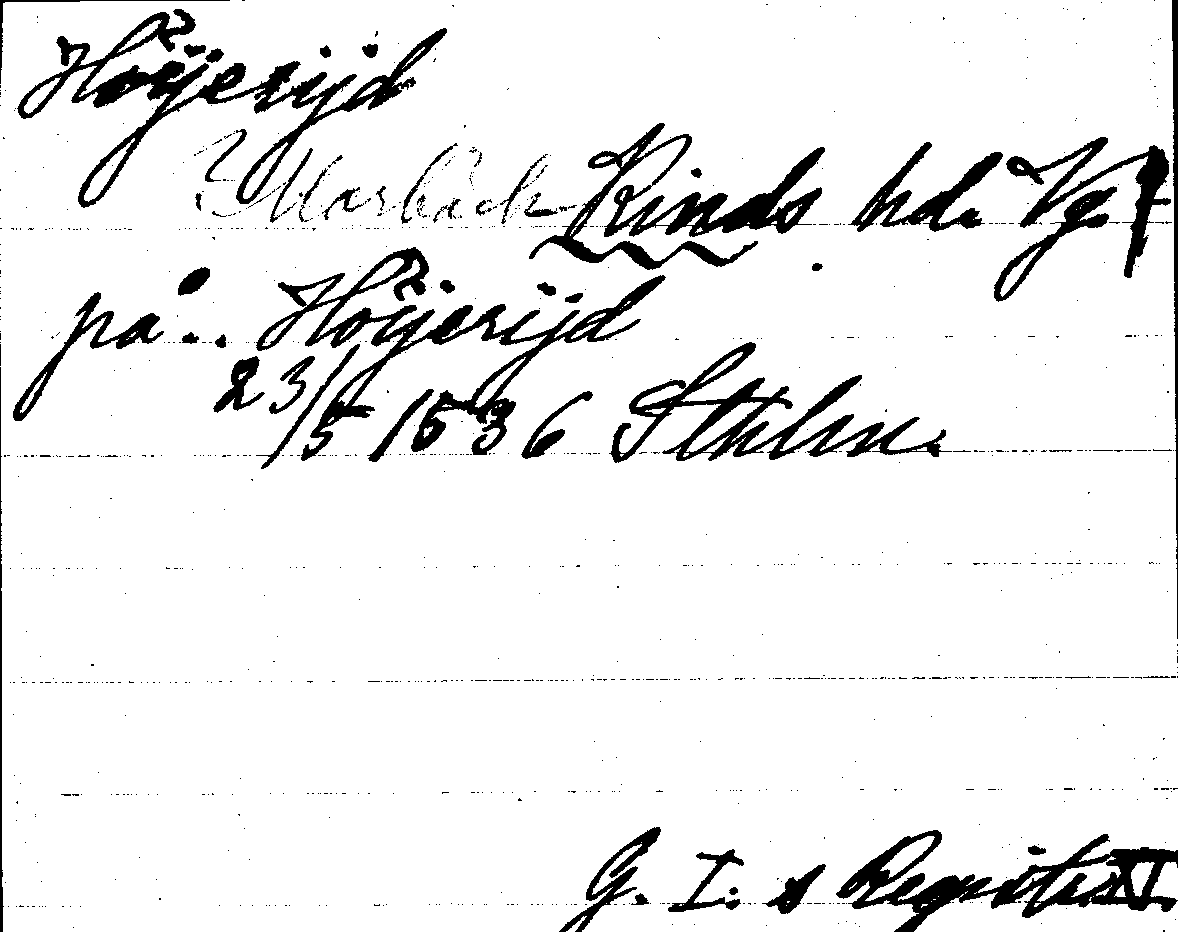 Höÿerijd
? Marbäck Kinds hd. Vg.
på.. Höÿerijd
23/5 1536 Sthlm.
G. I. s Registr. XI.